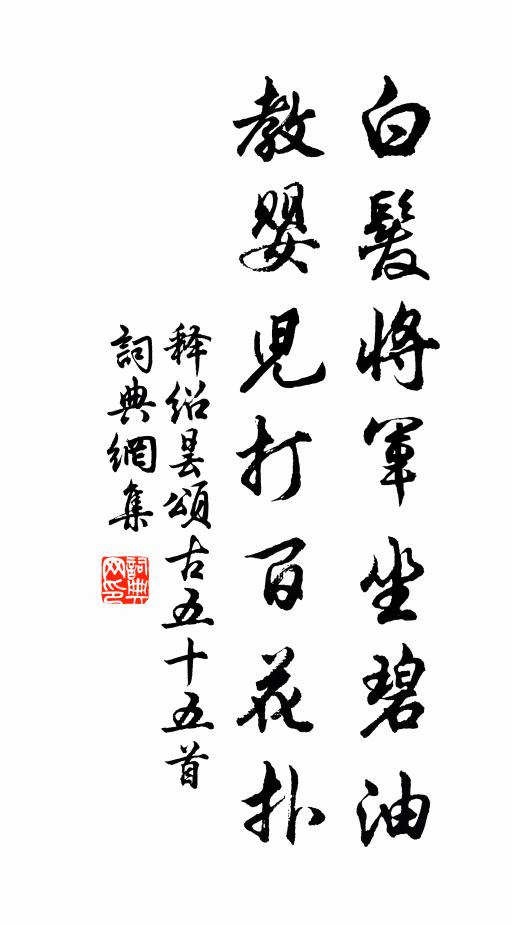 白髮將軍坐碧油
教嬰兒打百花扑
释紹昙頌古五十五首
詞典網集
詞典网印